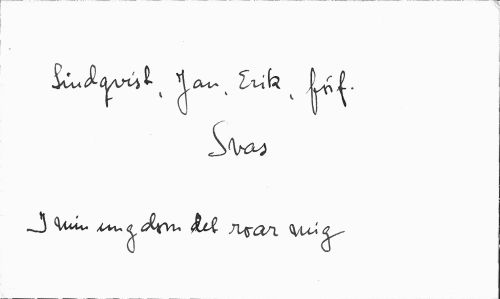 Lindqvist, Jan, Erik, förf.
Svas
I min ungdom det roar mig